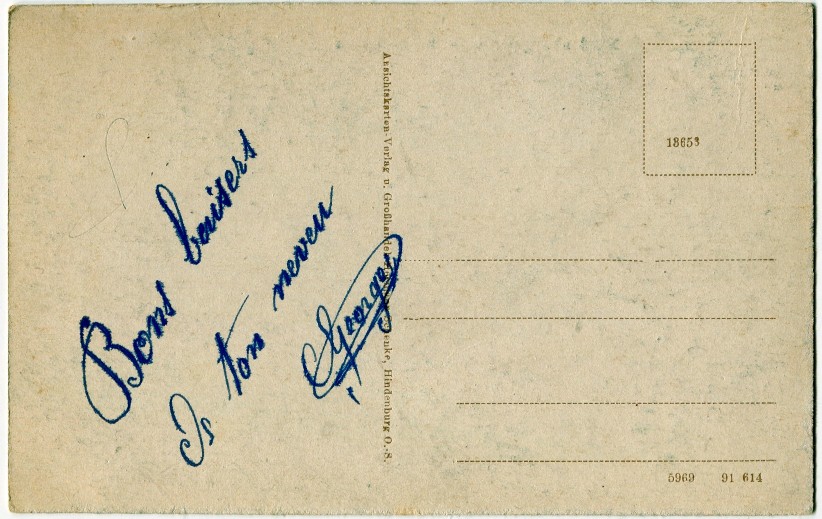 Bons baisers
De ton neveu
Georges
Ansichtskarten-Verlag u. Großhande enke, Hindenburg O.-S.
18653
5969 91 614